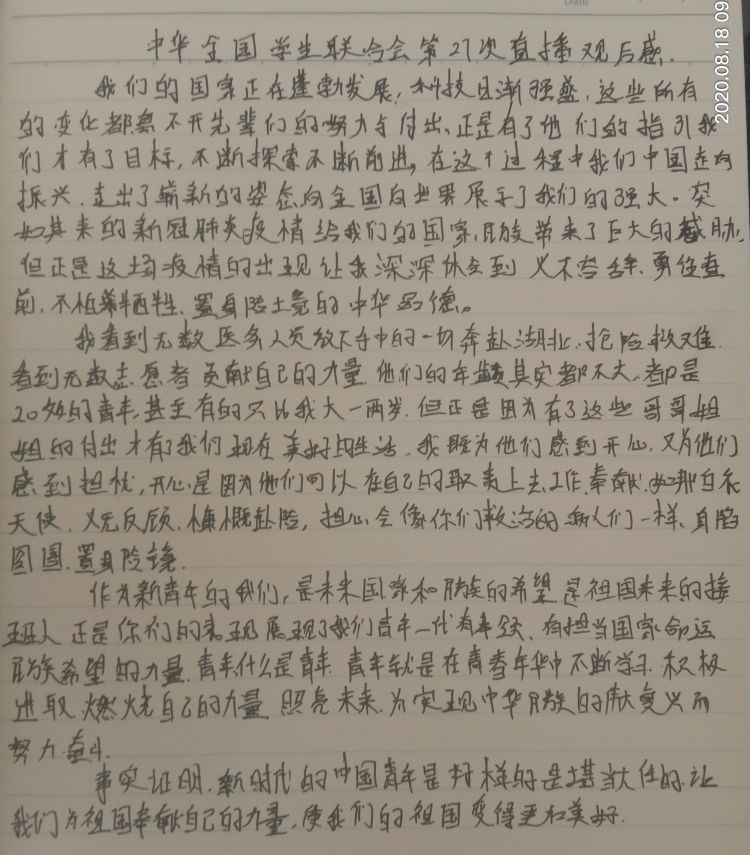 Date
2020.08.18 09
中华全国学生联合会第27次直播观后感.
我们的国家正在蓬勃发展,科技日渐强盛,这些所有
的变化都离不开先辈们的努力与付出、正是有了他们的指引我
们才有了目标,不断探索不断前进,在这个过程中我们中国走向
振兴.走出了崭新的姿态向全国向世界展示了我们的强大。突
如其来的新冠肺炎疫情给我们的国家,民族带来了巨大的威胁,
但正是这场疫情的出现让我深深体会到 义不容辞、勇往直
前、不怕牺牲、置身险境的中华品德。
我看到无数医务人员放下手中的一切奔赴湖北,抢险救难.
看到无数志愿者贡献自己的力量,他们的年龄其实都不大,都是
20多的青年,甚至有的只比我大一两岁.但正是因为有了这些哥哥姐
姐的付出才有了我们现在美好的生活.我既为他们感到开心,又为他们
感到担忧,开心是因为他们可以在自己的取责上去工作,奉献,如那白衣
天使.义无反顾.慷慨赴险,担心会像你们救治的病人们一样、身陷
囹圄.置身险境.
作为新青年的我们,是未来国家和民族的希望是祖国未来的接
班人 正是你们的表现展现了我们青年一代有本领、有担当国家命运
民族希望的力量.青年什么是青年.青年就是在青春年华中不断学习.积极
进取.燃烧自己的力量 照亮未来.为实现中华民族的伟大复兴而
努力奋斗.
事实证明.新时代的中国青年是好样的是堪当大任的.让
我们为祖国奉献自己的力量,使我们的祖国变得更加美好.